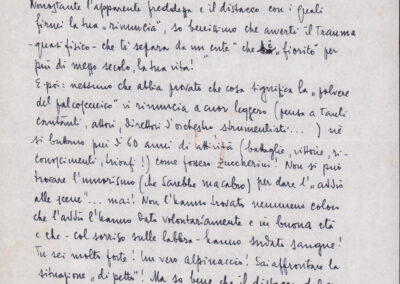 Nonostante l'apparente freddezza e il distacco con i quali
firmi la tua "rinuncia", so benissimo che averti il trauma
-quasi fisico- che ti separa da un ente "che è "fiorito" per
più di mezzo secolo, la tua vita!
E poi: nessuno che abbia provato che cosa significa la "polvere
del palcoscenico" vi rinuncia a cuor leggero (pensa a tanti
cantanti, attori, direttori d'orchestra strumentisti...) né
si buttano più di 60 anni di attività (battaglie, vittorie, ri-
conoscimenti, trionfi!) come fossero zuccherini! Non si può
trovare l'umorismo (che sarebbe macabro) per dare l'"addio
alle scene"... mai! Non l'hanno trovato nemmeno coloro
che l'addio l'hanno dato volontariamente e in buona età
e che - col sorriso sulle labbra - hanno sudato sangue!
Tu sei molto forte! Un vero alpinaccio! Sai affrontare la
situazione "di petto"! Ma so bene che il distacco